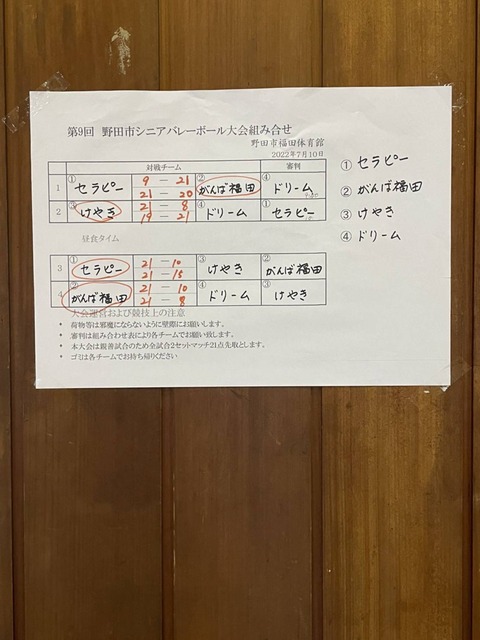 第9回 野田市シニアバレーボール大会組み合せ
野田市福田体育館
2022年7月10日
対戦チーム 審判
1 ① セラピー 9 — 21 ② がんば福田 ④ ドリーム
21 — 20
2 ③ けやき 21 — 8 ④ ドリーム ① セラピー
19 — 21
昼食タイム
3 ① セラピー 21 — 10 ③ けやき ② がんば福田
21 — 15
4 ② がんば福田 21 — 10 ④ ドリーム ③ けやき
21 — 8
大会運営および競技上の注意
* 荷物等は邪魔にならないように壁際にお願いします。
* 審判は組み合わせ表により各チームでお願い致します。
* 本大会は親善試合のため全試合2セットマッチ21点先取とします。
* ゴミは各チームでお持ち帰りください
① セラピー
② がんば福田
③ けやき
④ ドリーム